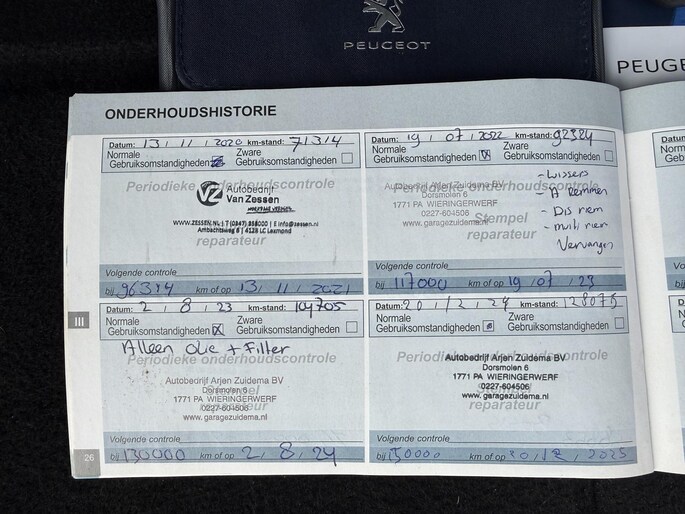 PEUGEOT
PEUGE
ONDERHOUDSHISTORIE
Datum: 13 / 11 / 2020 km-stand: 71314
Normale Gebruiksomstandigheden
Zware Gebruiksomstandigheden
Periodieke onderhoudscontrole
VZ Autobedrijf
Van Zessen
WWW.ZESSEN.NL
Ambachtsweg 6 | 4128 LC Lexmond
reparateur
Volgende controle
bij 96314 km of op 13 / 11 / 2021
Datum: 19 / 07 / 2022 km-stand: 92324
Normale Gebruiksomstandigheden
Zware Gebruiksomstandigheden
Periodieke onderhoudscontrole
Autobedrijf Arjen Zuidema BV
Dorsmolen 6
1771 PA WIERINGERWERF
0227-604506
www.garagezuidema.nl
Stempel
reparateur
- Wissers
- A Remmen
- Dis riem
- multi riem
Vervangen
Volgende controle
bij 117000 km of op 19 / 07 / 23
III
Datum: 2 / 8 / 23 km-stand: 104705
Normale Gebruiksomstandigheden
Zware Gebruiksomstandigheden
Alleen olie + Filter
Periodieke onderhoudscontrole
Autobedrijf Arjen Zuidema BV
Dorsmolen 6
1771 PA WIERINGERWERF
0227-604506
www.garagezuidema.nl
reparateur
Volgende controle
bij 130000 km of op 2 / 8 / 24
Datum: 20 / 12 / 24 km-stand: 128075
Normale Gebruiksomstandigheden
Zware Gebruiksomstandigheden
Periodieke onderhoudscontrole
Autobedrijf Arjen Zuidema BV
Dorsmolen 6
1771 PA WIERINGERWERF
0227-604506
www.garagezuidema.nl
reparateur
Volgende controle
bij 150000 km of op 20 / 12 / 2025
26